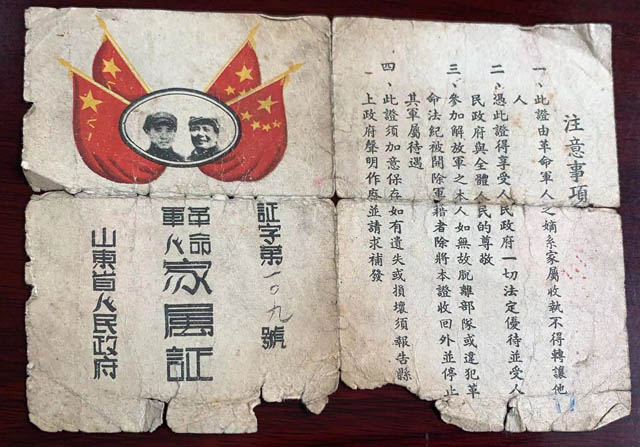 注意事項
一、此證由革命軍人之嫡系家屬收執不得轉讓他
人
二、憑此證得享受人民政府一切法定優待並受人
民政府與全體人民的尊敬
三、參加解放軍之本人如無故脫離部隊或違犯革
命法紀被開除軍籍者除將本證收回外並停止
其軍屬待遇
四、此證須加意保存如有遺失或損壞須報告縣
上政府聲明作廢並請求補發
証字第一〇九號
革命
軍人
家屬証
山東省人民政府